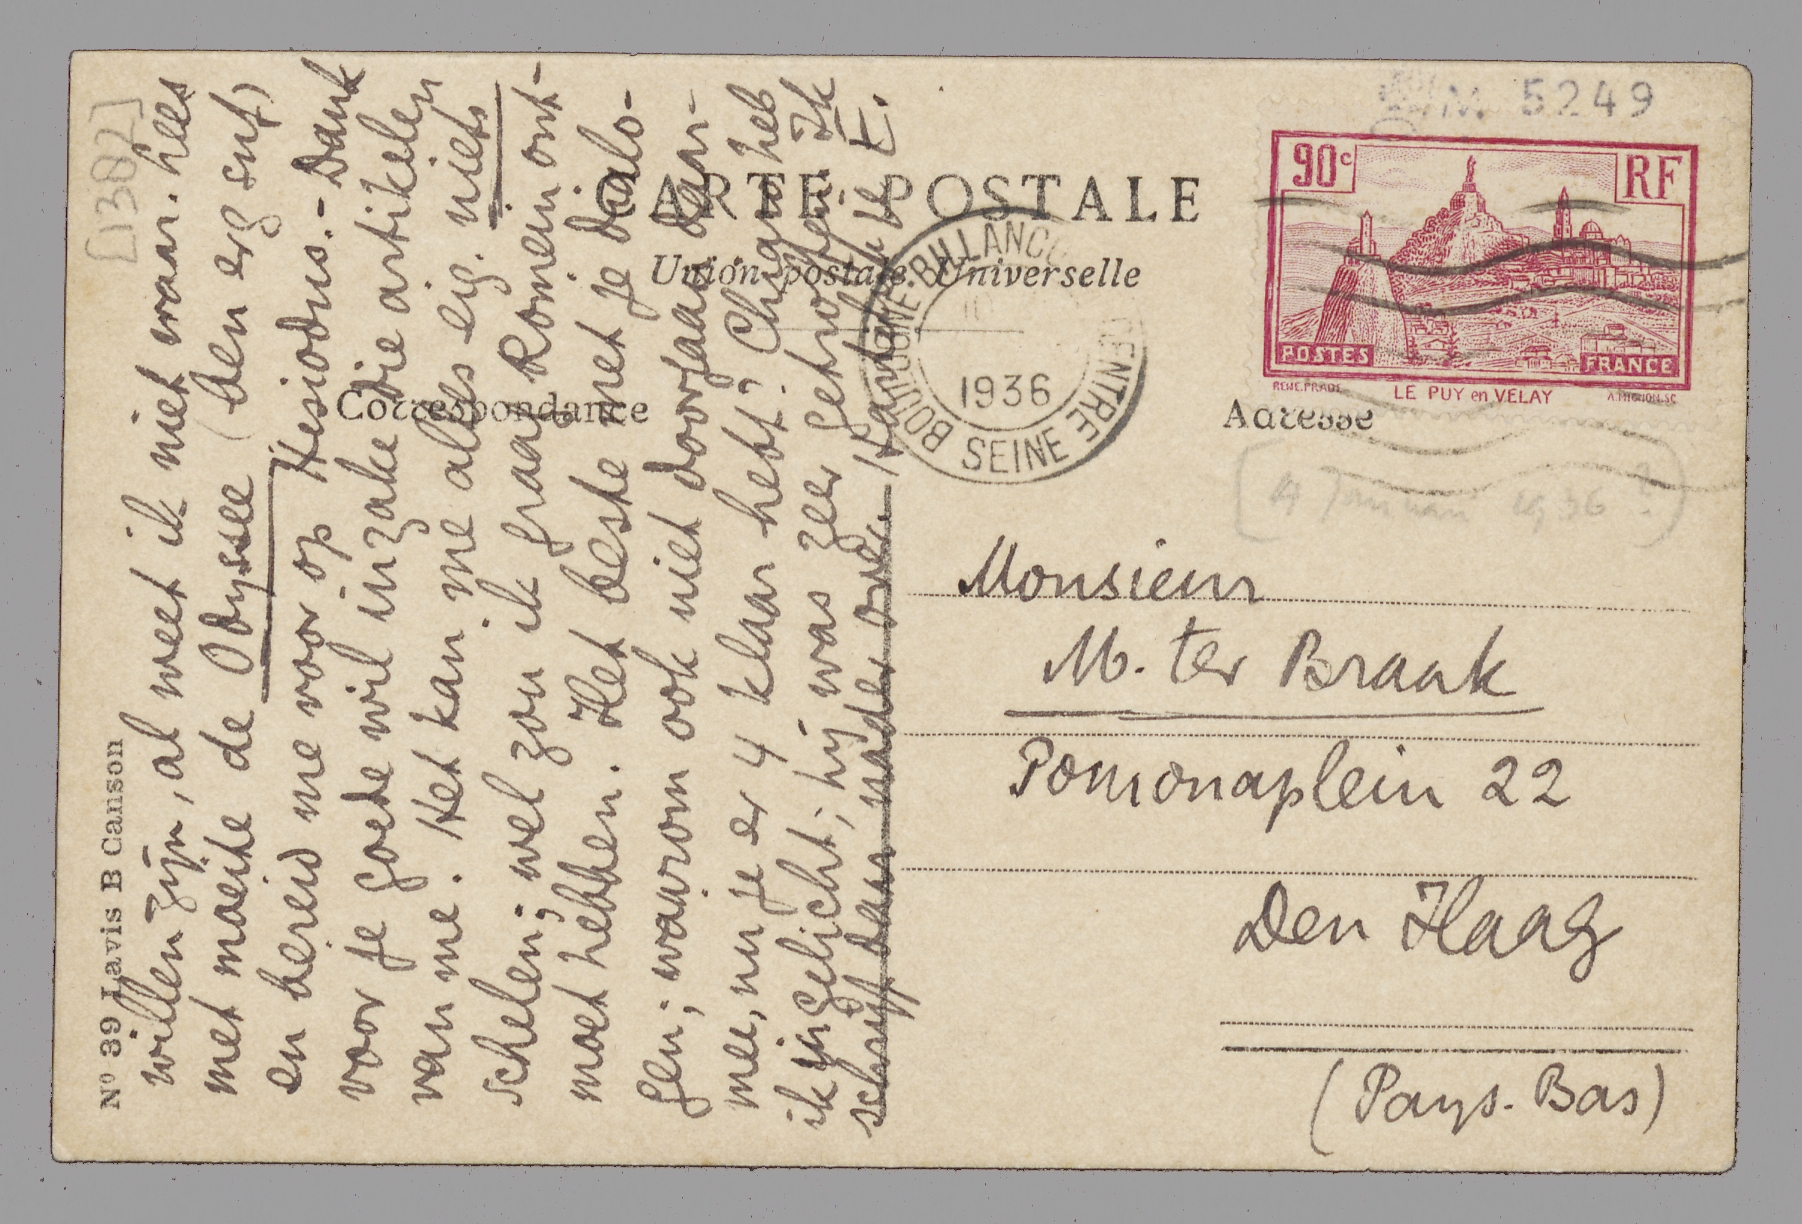 [1387]
M 5249
90c
RF
POSTES
FRANCE
RENE.PRADE
LE PUY en VELAY
A.MIGNON.SC
CARTE POSTALE
Union postale Universelle
Correspondance
Adresse
BOULOGNE BILLANCOURT CENTRE
1936
SEINE
[4 Januari 1936?]
Nº 39 Lavis B Canson
willen zijn, al weet ik niet waar. Lees
met moeite de Odyssee (ben erg suf)
en bereid me voor op Hesiodus. - Dank
voor je goede wil inzake die artikelen
van me. Het kan me alles eig. niets
schelen; wel zou ik graag Romein ont-
moet hebben. Het beste met je dialo-
gen; waarom ook niet doorgaan daar-
mee, nu je er 4 klaar hebt? Chiaro heb
ik ingelicht; hij was zeer getroffen. Ik
schrijf daar nader over. Hand v. je E.
Monsieur
M. ter Braak
Pomonaplein 22
Den Haag
(Pays-Bas)